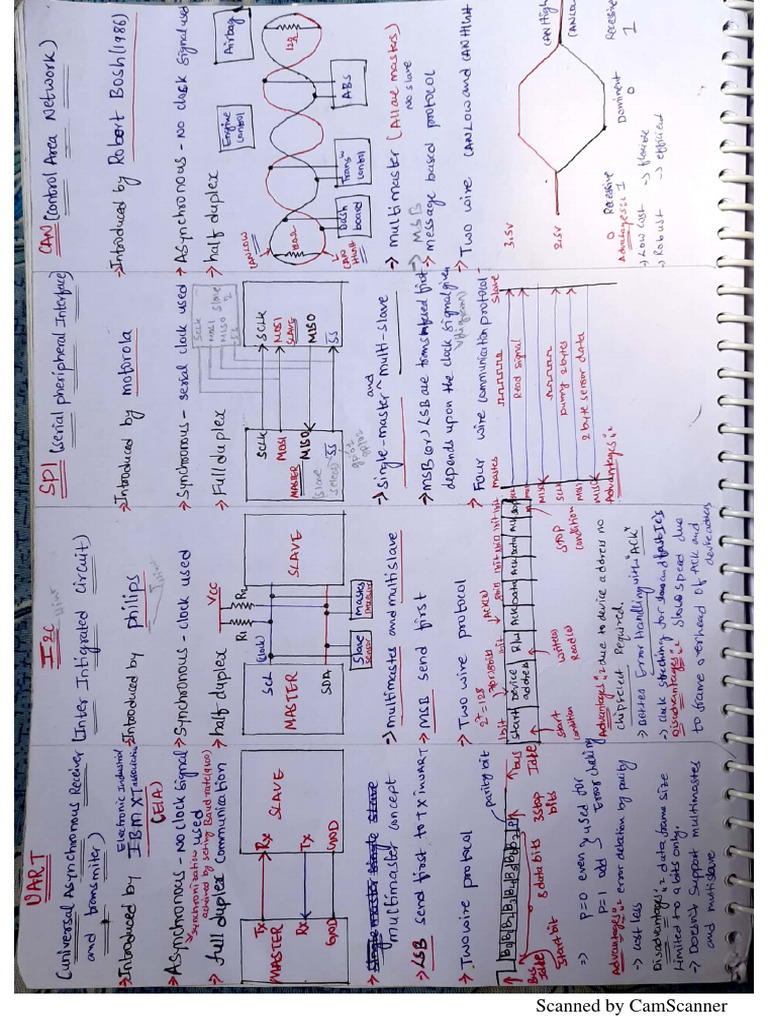 UART
(universal Asynchronous Receiver
and transmiter)
Electronic Industrial
→Introduced by IBM XT Association
(EIA)
→Asynchronous - no clock signal
used
→synchronization
achieved by setting Baud rate(9600)
→full duplex communication
Tx
Rx
MASTER
SLAVE
Rx
Tx
GND
GND
multimaster concept
→LSB send first to Tx in UART
→Two wire protocol
parity bit
Bus
Idle
Start bit
8 data bits
stop
bits
bus
Idle
⇒ P=0 even used for
P=1 odd Error checking
Advantages:: error detation by parity
→ cost less
Disadvantages:: data frame size
limited to 9 bits only.
→ Doesn't support multimaster
and multislave
I2C
(Inter Intigrated circuit)
→Introduced by philips
→Synchronous - clock used
→half duplex
VCC
R1
R2
SCL
(clock)
MASTER
SDA
SLAVE
Slave
sensor
master
→multimaster and multislave
→MSB send first
→Two wire protocol
2^7=128
1bit
7or10bits
1bit
ACK(0)
8bit
1bit
8bit
1bit
1bit
Start
Device
address
R/w
Ack
Data
Ack
Data
Ack
Stop
Start
condition
write(0)
Read(1)
STOP
condition
Advantages:: due to device address no
chipselect Required.
→ Better Error Handling with "ACK"
→ clock streching for slow and fast
Disadvantages:: Slow speed due
to frame overhead of ACK and
SPI
(serial pheripheral Interface)
→Introduced by motorola
→Synchronous - serial clock used
→Full duplex
SCLK
MOSI
MISO
SS
Slave
2
SCLK
MOSI
MASTER
MISO
(slave
select)
SS
SCLK
MOSI
SLAVE
MISO
SS
→single-master and multi-slave
→MSB (or) LSB are transfered first
depends upon the clock signal given
(diagram)
→ Four wire communication protocol
master
slave
Read signal
MISO
SCLK
Dummy 2 bytes
MOSI
2 byte sensor data
MISO
Advantages::
CAN (Control Area Network)
→Introduced by Robert Bosh (1986)
→Asynchronous - no clock signal used
→half duplex
Engine
control
Airbag
CANLOW
CAN
HIGH
Dash
board
Trans^n
control
ABS
→ multimaster (All are masters)
no slave
→ MSB
→message based protocol
→ Two wire CANLOW and CANHIGH
3.5V
2.5V
CANHigh
CANLOW
Recessive
Dominent
0
Recessive
1
Advantages::
→Low cost
→ flexible
→ Robust
→ efficient
Scanned by CamScanner